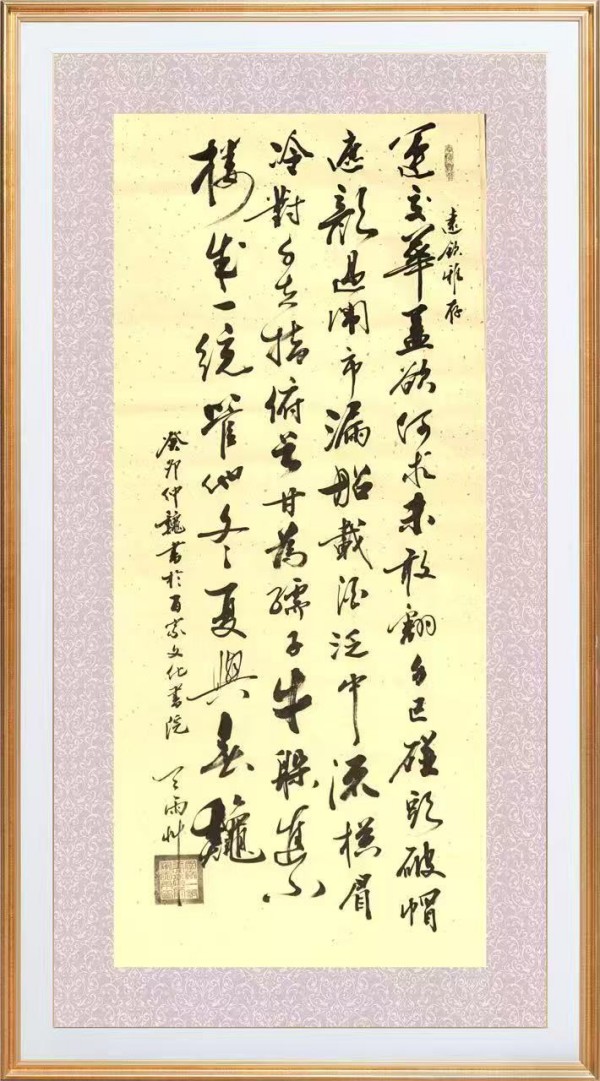 遠欽雅存
運交華蓋欲何求未敢翻身已碰頭破帽
遮顏過鬧市漏船載酒泛中流橫眉
冷對千夫指俯首甘為孺子牛躲進小
樓成一統管他冬夏與春龝
癸卯仲龝書於百家文化書院
天雨艸